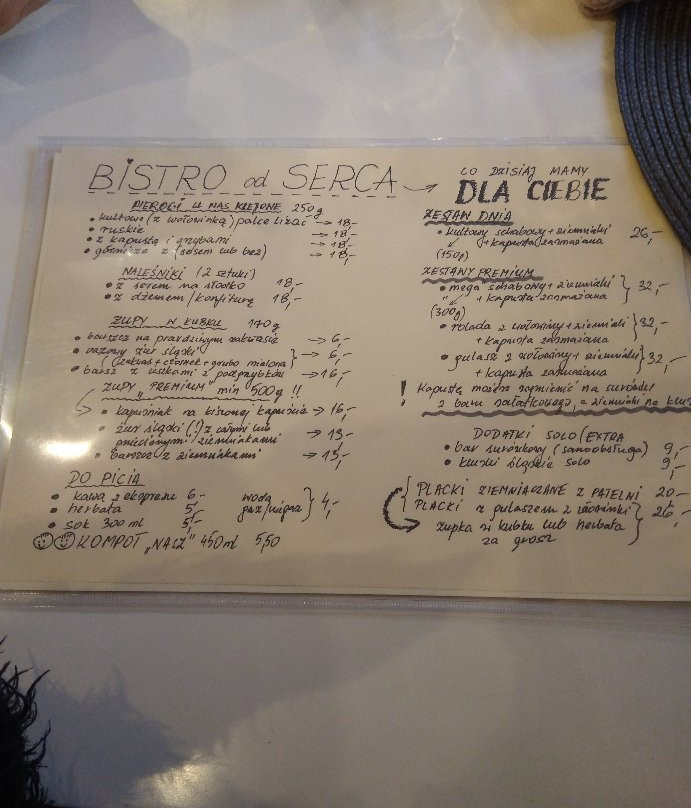 BISTRO od SERCA →
PIEROGI U NAS KLEJONE 250g
• kultowe (z wołowinką) palce lizać → 18,-
• ruskie → 18,-
• z kapustą i grzybami → 18,-
• górnicze z (sosem lub bez) → 18,-
NALEŚNIKI (2 sztuki)
• z serem na słodko 18,-
• z dżemem/konfiturą 18,-
ZUPY W KUBKU 170g
• barszcz na prawdziwym zakwasie → 6,-
• żur śląski → 6,-
(zakwas + czosnek + grubo mielona)
• barszcz z uszkami z podgrzybków → 16,-
ZUPY „PREMIUM" min 500g !!
• kapuśniak na kiszonej kapuście → 16,-
• żur śląski (!) z całymi lub
ziemniakami → 15,-
• barszcz z ziemniakami → 15,-
DO PICIA
• kawa z ekspresu 6,-
• herbata 5,-
• sok 300 ml 5,-
woda
gaz/niegaz } 4,-
KOMPOT „NASZ" 450ml 5,50
CO DZISIAJ MAMY
DLA CIEBIE
ZESTAW DNIA
• kultowy schabowy + ziemniaki 26,-
+ kapusta zasmażana
(150g)
ZESTAWY PREMIUM
• mega schabowy + ziemniaki } 32,-
" + kapusta zasmażana
(300g)
• rolada z wołowiny + ziemniaki } 32,-
+ kapusta zasmażana
• gulasz z wołowiny + ziemniaki } 32,-
+ kapusta zasmażana
! Kapustę można zamienić na surówki
! z baru sałatkowego, a ziemniaki na
DODATKI SOLO/EXTRA
• bar surówkowy (samoobsługa) 9,-
• kluski śląskie solo 9,-
PLACKI ZIEMNIACZANE Z PATELNI 20-
PLACKI z gulaszem z wołowinki } 26,-
zupka w kubku lub herbata
za grosz